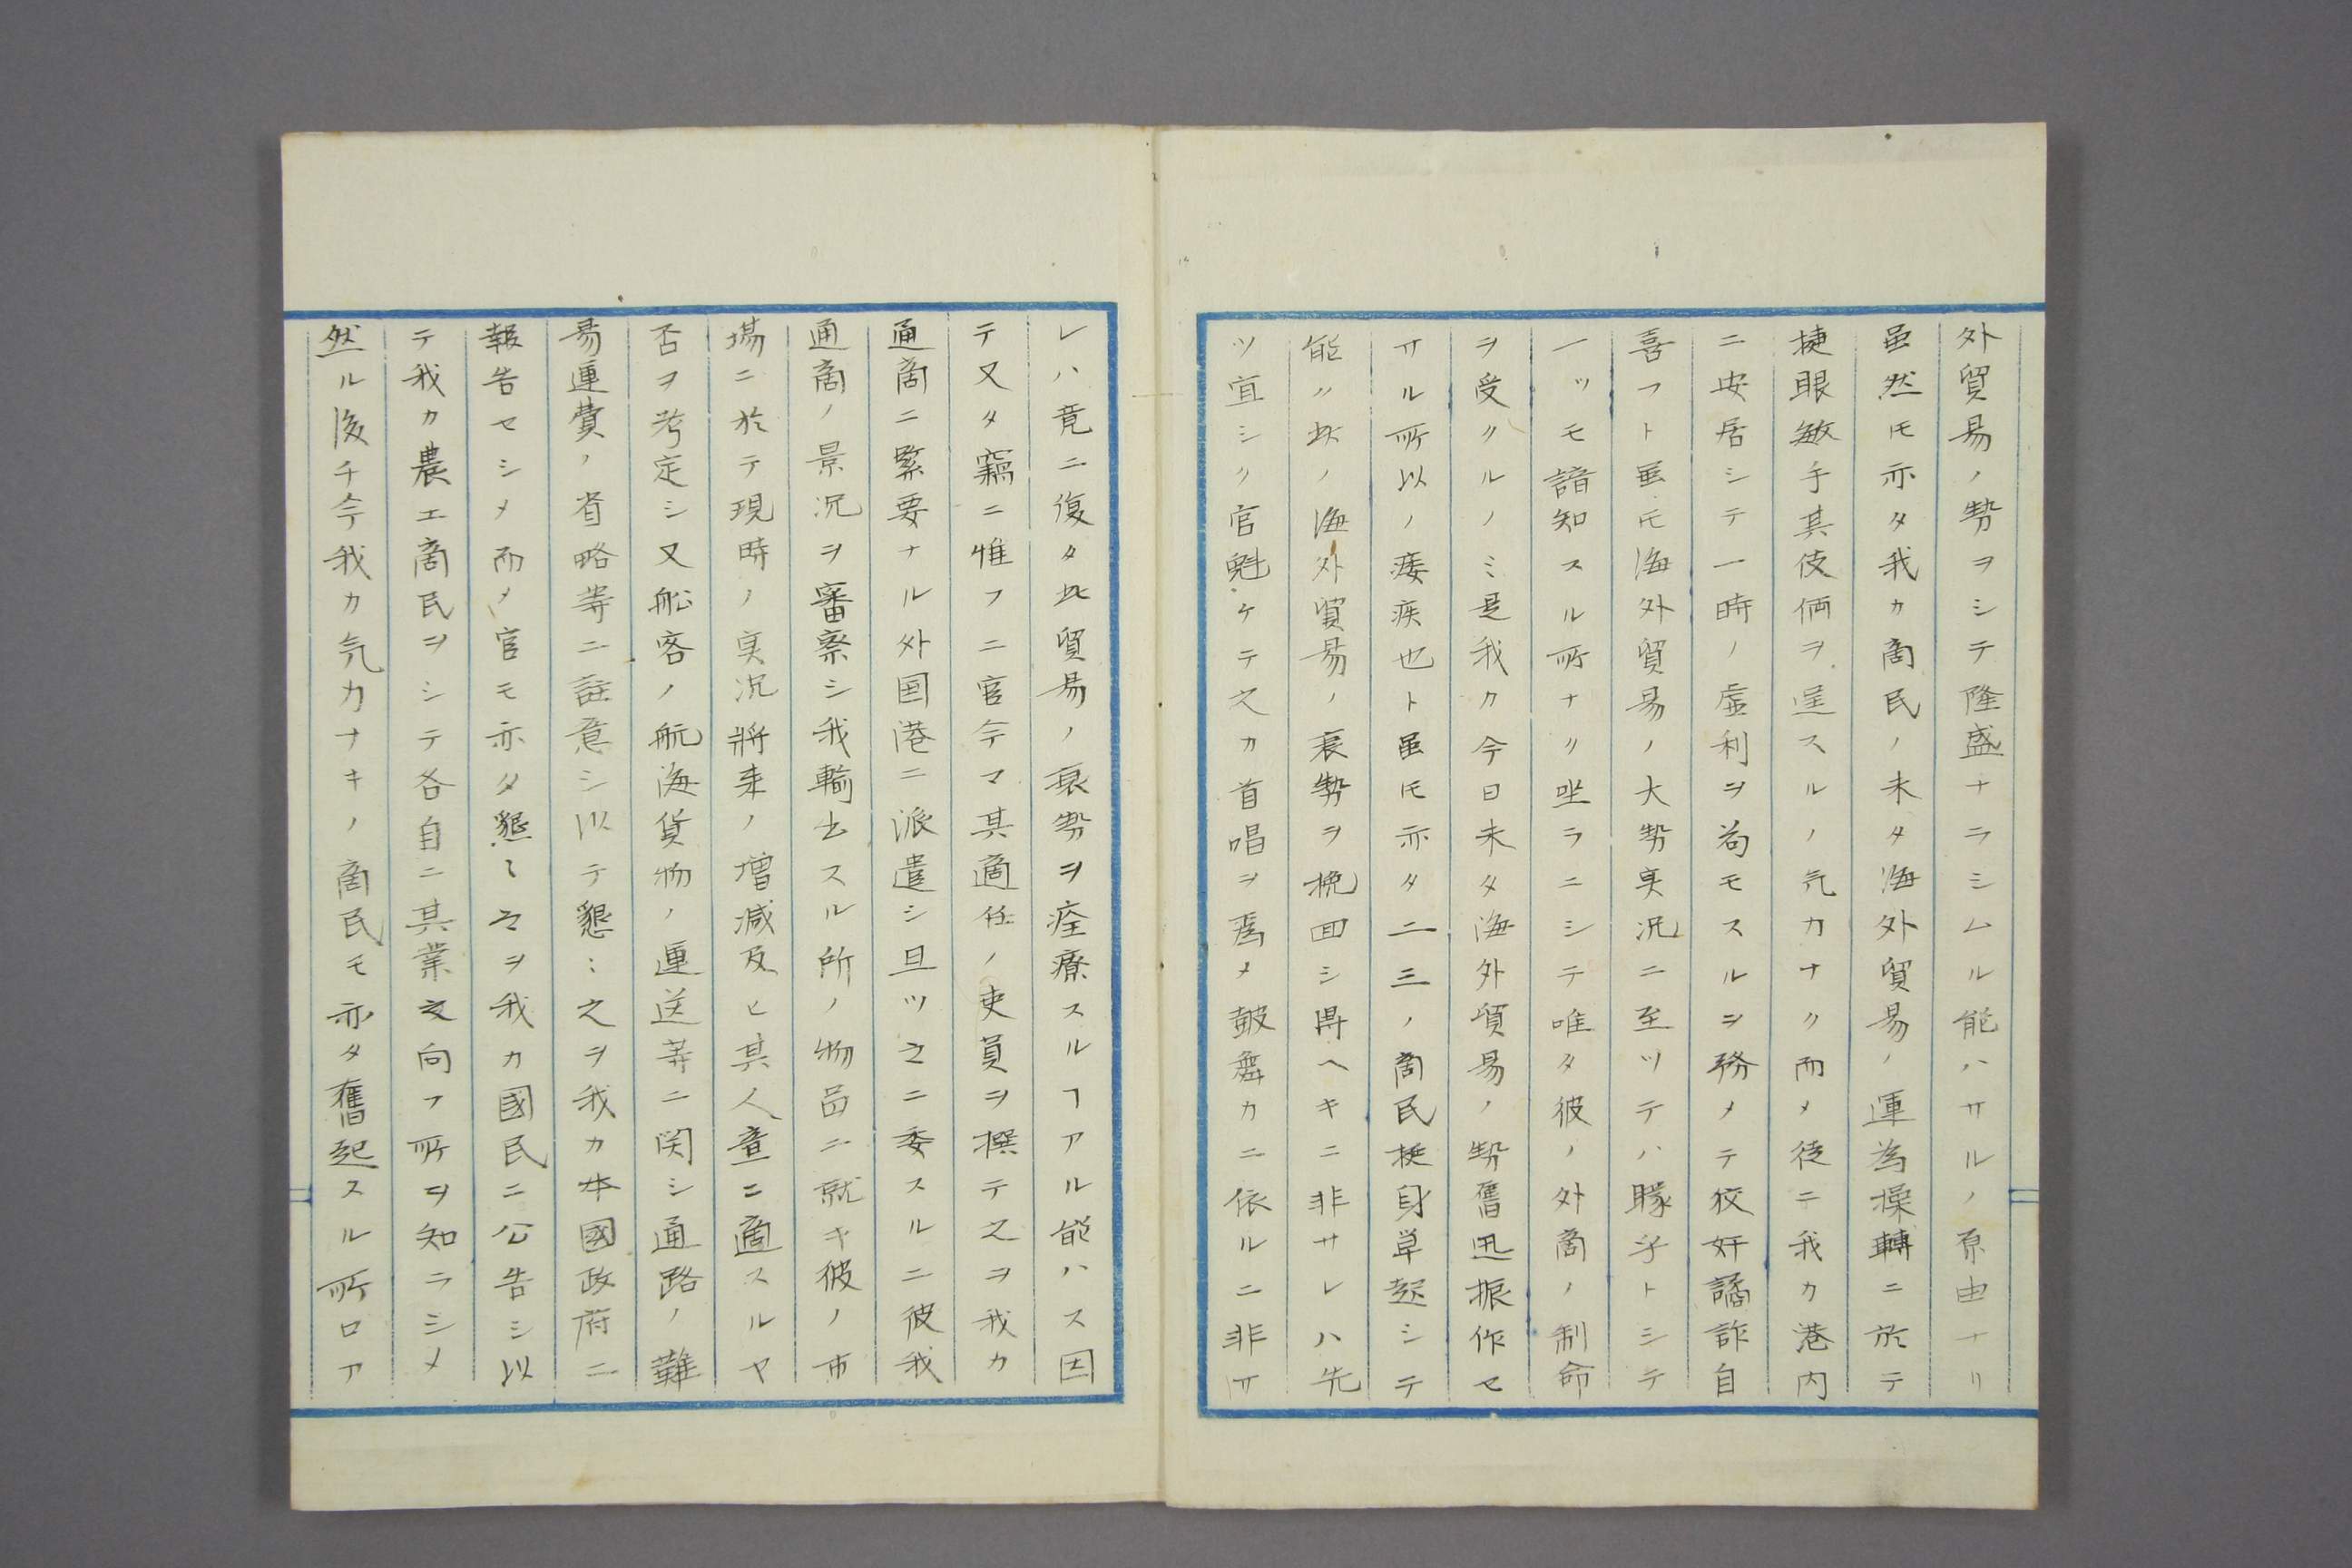 外貿易ノ勢ヲシテ隆盛ナラシムル能ハサルノ原由ナリ
虽然モ亦タ我カ商民ノ未タ海外貿易ノ運為操轉ニ於テ
捷眼敏手其伎倆ヲ逞スルノ気力ナク而メ徒ニ我カ港内
ニ安居シテ一時ノ虚利ヲ苟モスルヲ務メテ狡奸譎詐自
喜フト虽𪜈海外貿易ノ大勢実况ニ至ツテハ矇乎トシテ
一ツモ諳知スル所ナク坐ラニシテ唯タ彼ノ外商ノ制命
ヲ受クルノミ是我カ今日未タ海外貿易ノ勢奮迅振作セ
サル所以ノ痿疾也ト虽𪜈亦タ二三ノ商民挺身単起シテ
能ク此ノ海外貿易ノ衰勢ヲ挽回シ得ヘキニ非サレハ先
ツ宜シク官魁ケテ之カ首唱ヲ為メ皷舞カニ依ルニ非サ
レハ竟ニ復タ此貿易ノ衰勢ヲ痊療スルヿアル能ハス因
テ又タ竊ニ惟フニ官今マ其適任ノ吏員ヲ撰テ之ヲ我カ
通商ニ緊要ナル外国港ニ派遣シ且ツ之ニ委スルニ彼我
通商ノ景况ヲ審察シ我輸出スル所ノ物品ニ就キ彼ノ市
場ニ於テ現時ノ実况將来ノ増減及ヒ其人意ニ適スルヤ
否ヲ考定シ又船客ノ航海貨物ノ運送等ニ関シ通路ノ難
易運費ノ省略等ニ註意シ以テ懇〻之ヲ我カ本國政府ニ
報告セシメ而メ官モ亦タ懇〻之ヲ我カ國民ニ公告シ以
テ我カ農工商民ヲシテ各自ニ其業之向フ所ヲ知ラシメ
然ル後チ今我カ気力ナキノ商民モ亦タ奮起スル所ロア